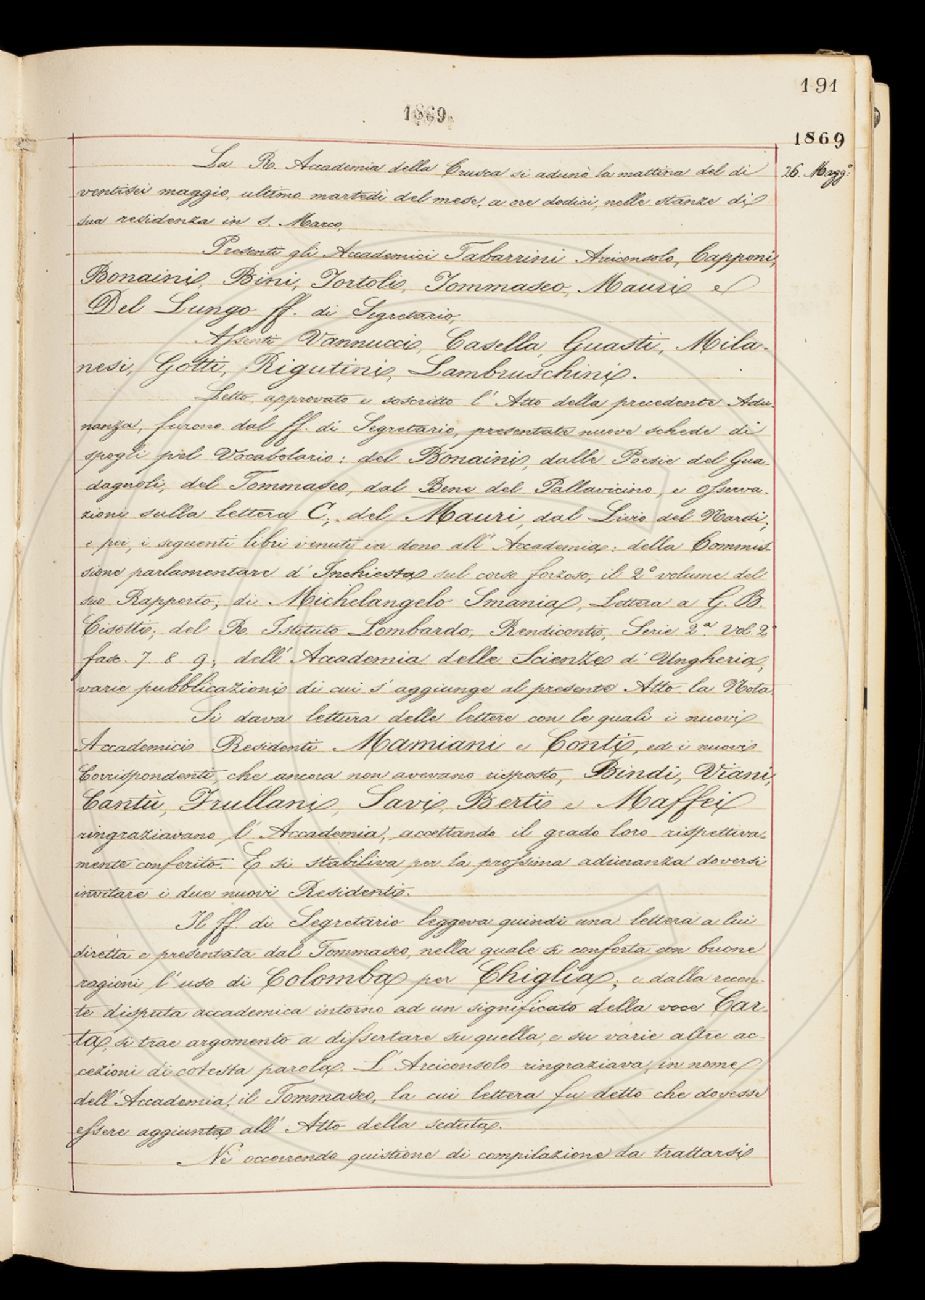 191
1869
1869
26. Magg.º
La R. Accademia della Crusca si adunò la mattina del dì
ventisei maggio, ultimo martedì del mese, a ore dodici, nelle stanze di
sua residenza in S. Marco.
Presenti gli Accademici Tabarrini Arciconsolo, Capponi,
Bonaini, Bini, Tortoli, Tommaseo, Mauri e
Del Lungo ff. di Segretario.
Assenti Vannucci, Casella, Guasti, Mila-
nesi, Gotti, Rigutini, Lambruschini.
Letto, approvato e soscritto l'Atto della precedente Adu-
nanza, furono dal ff. di Segretario, presentate nuove schede di
spogli pel Vocabolario: del Bonaini, dalle Poesie del Gua-
dagnoli, del Tommaseo, dal Bene del Pallavicino, e osserva-
zioni sulla lettera C; del Mauri, dal Livio del Nardi;
e poi, i seguenti libri venuti in dono all'Accademia: della Commis-
sione parlamentare d'Inchiesta sul corso forzoso, il 2º volume del
suo Rapporto; di Michelangelo Smania, Lettera a G. B.
Cisotti; del R. Istituto Lombardo, Rendiconto, Serie 2.ª Vol. 2º
fasc. 7 8 9; dell'Accademia delle Scienze d'Ungheria,
varie pubblicazioni di cui s'aggiunge al presente Atto la Nota.
Si dava lettura delle lettere con le quali i nuovi
Accademici Residenti Mamiani e Conti, ed i nuovi
Corrispondenti, che ancora non avevano risposto, Bindi, Viani,
Cantù, Frullani, Savi, Berti e Maffei
ringraziavano l'Accademia, accettando il grado loro rispettiva-
mente conferito. E si stabiliva per la prossima adunanza doversi
invitare i due nuovi Residenti.
Il ff. di Segretario leggeva quindi una lettera a lui
diretta e presentata dal Tommaseo, nella quale si conforta con buone
ragioni l'uso di Colomba per Chiglia; e dalla recen-
te disputa accademica intorno ad un significato della voce Car-
ta, si trae argomento a dissertare su quella, e su varie altre ac-
cezioni di cotesta parola. L'Arciconsolo ringraziava, in nome
dell'Accademia, il Tommaseo, la cui lettera fu detto che dovesse
essere aggiunta all'Atto della seduta.
Nè occorrendo quistione di compilazione da trattarsi